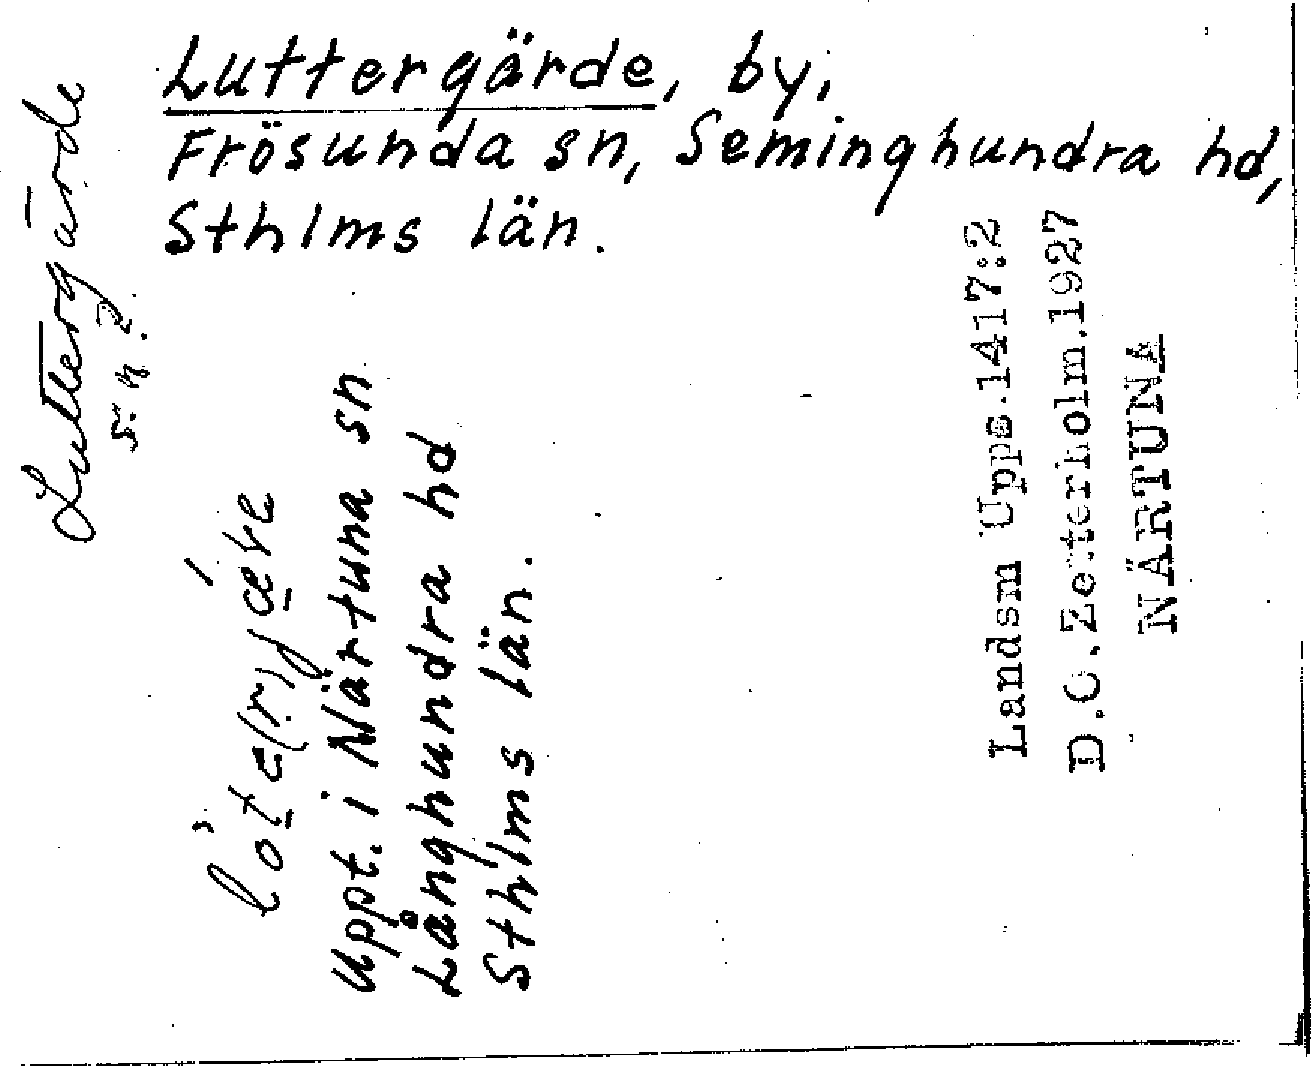 Luttergärde, by,
Frösunda sn, Seminghundra hd,
Sthlms län.
Luttergärde
Uppt. i Närtuna sn
Långhundra hd
Sthlms län.
Landsm Upps.1417:2
D.O.Zetterholm.1927
NÄRTUNA